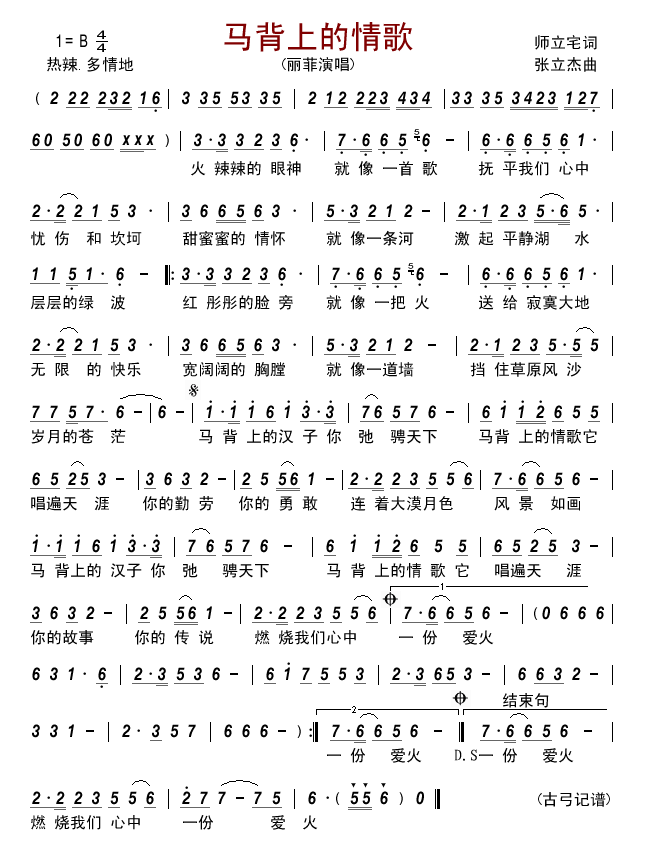 马背上的情歌
1= B 4/4
师立宅词
热辣.多情地
(丽菲演唱)
张立杰曲
( 2 22 232 16 | 3 35 53 35 | 2 12 223 434 | 33 35 3423 127 |
60 50 60 xxx ) | 3·3 3 2 3 6· | 7·6 6 5 5 6 - | 6·6 6 5 6 1· |
火 辣辣的 眼神 就 像 一首 歌 抚 平我们 心中
2·2 2 1 5 3 · | 3 6 6 5 6 3 · | 5·3 2 1 2 - | 2·1 2 3 5·6 5 · |
忧 伤 和 坎坷 甜蜜蜜的 情怀 就 像一条河 激 起 平静湖 水
1 1 5 1· 6 - |: 3·3 3 2 3 6 · | 7·6 6 5 5 6 - | 6·6 6 5 6 1· |
层层的绿 波 红 彤彤的脸 旁 就 像 一把 火 送 给 寂寞大地
2·2 2 1 5 3 · | 3 6 6 5 6 3 · | 5·3 2 1 2 - | 2·1 2 3 5·5 5 |
无 限 的 快乐 宽阔阔的 胸膛 就 像一道墙 挡 住草原风 沙
7 7 5 7· 6 - | 6 - | 1·1 1 6 1 3·3 | 7 6 5 7 6 - | 6 1 1 2 6 5 5 |
岁月的苍 茫 马 背 上的汉 子 你 弛 骋天下 马背 上的情歌它
6 5 25 3 - | 3 6 3 2 - | 2 5 56 1 - | 2·2 2 3 5 5 6 | 7·6 6 5 6 - |
唱遍天 涯 你的勤 劳 你的 勇 敢 连 着大漠月色 风 景 如画
1·1 1 6 1 3·3 | 7 6 5 7 6 - | 6 1 1 2 6 5 5 | 6 5 2 5 3 - |
马 背上的 汉子 你 弛 骋天下 马 背 上的情 歌 它 唱遍天 涯
1
3 6 3 2 - | 2 5 56 1 - | 2·2 2 3 5 5 6 | 7·6 6 5 6 - | (0 6 6 6 |
你的故事 你的 传 说 燃 烧我们心中 一 份 爱火
6 3 1 · 6 | 2·3 5 3 6 - | 6 1 7 5 5 3 | 2·3 6 5 3 - | 6 6 3 2 - |
2 结束句
3 3 1 - | 2 · 3 5 7 | 6 6 6 - ) :| 7·6 6 5 6 - | 7·6 6 5 6 - |
一 份 爱火 D.S一 份 爱火
2·2 2 3 5 5 6 | 2 7 7 - 7 5 | 6 ·( 5 5 6 ) 0 ‖
(古弓记谱)
燃 烧我们 心中 一份 爱 火